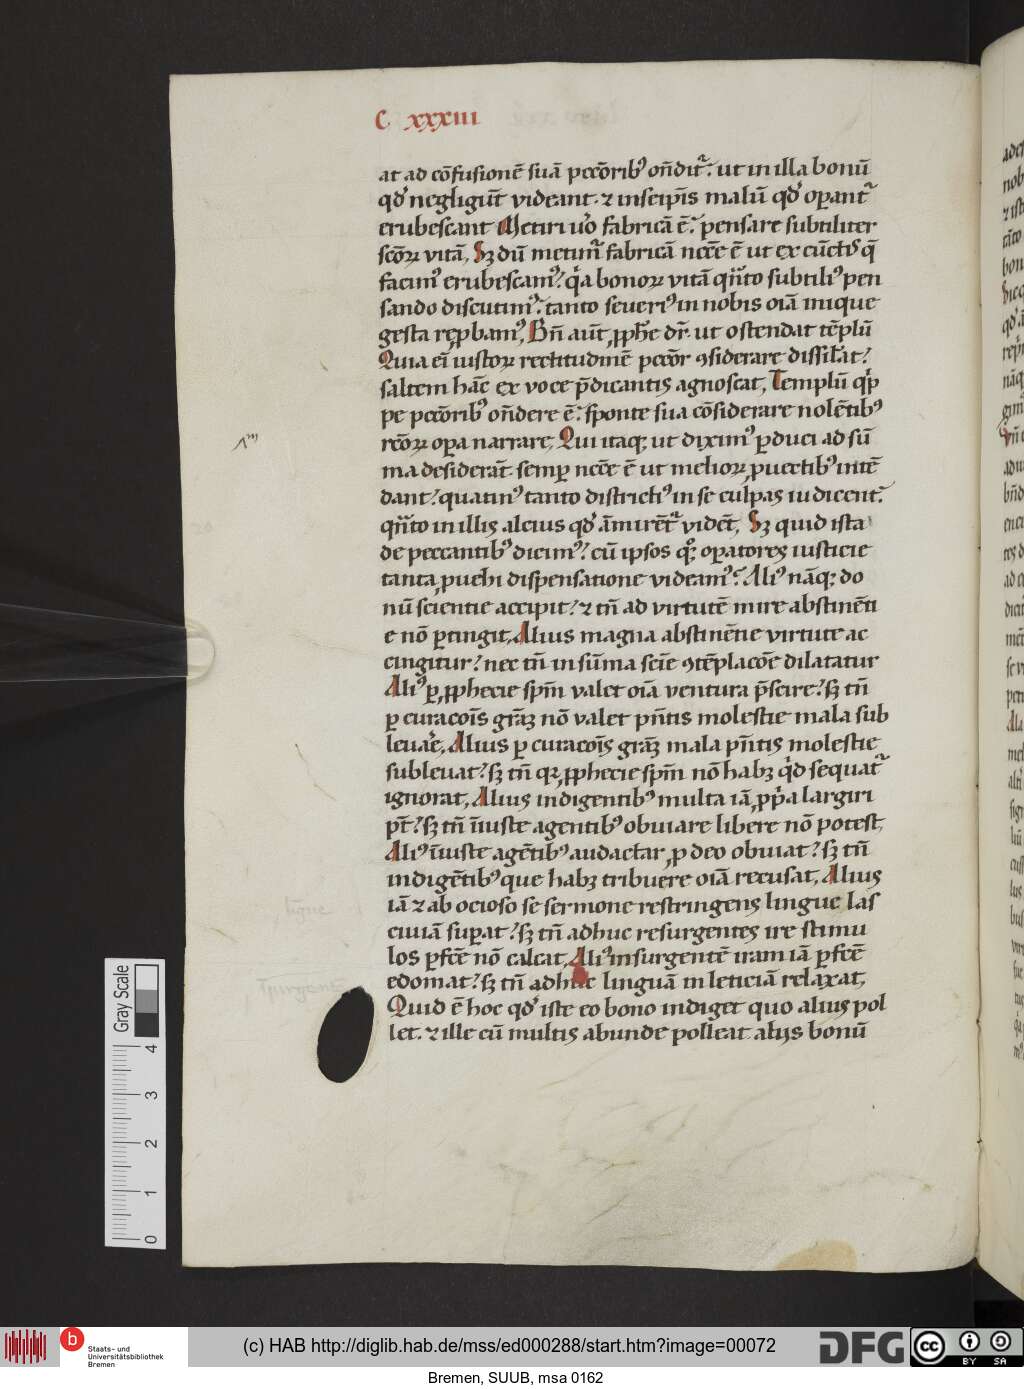 C xxxiii
at ad cōfusionē suā peccōrib' oñdit᷑. ut in illa bonū
qd' negligūt videant. ⁊ in seip̄is malū qd' oꝑant᷑
erubescant Metiri ūo fabricā ē. pensare subtiliter
sc̄oꝝ vitā, Sꝫ dū metim᷑ fabricā nec̄e ē ut ex cūctis q̄
facim' erubescam'. q̇a bonoꝝ vitā qn̄to subtili' pen
sando discutim'. tanto seueri' in nobis oīa inique
gesta rep̱bam', Bn̄ aūt ꝓph̄e dr̄. ut ostendat tēplū
Quia eī iustoꝝ rectitudinē peccōr ꝯsiderare dissiłat.
saltem hāc ex voce p̄dicantis agnoscat, Templū q̇p
pe peccōrib' oñdere ē. sponte sua cōsiderare nolētib'
recōꝝ oꝑa narrare, Qui itaqꝫ ut dixim' ꝑduci ad sū
ma desiderāt semꝑ nec̄e ē ut melioꝝ ꝓuectib' intē
dant. quatin' tanto districti' in se culpas iudicent.
qn̄to in illis alcius qd' āmirēt᷑ vidēt, Sꝫ quid ista
de peccantib' dicim'. cū ipsos qꝫ oꝑatores iusticie
tanta ꝓuehi dispensatione videam'. Ali' nāqꝫ do
nū scientie accipit. ⁊ tn̄ ad virtutē mire abstinēti
e nō ꝑtingit, Alius magna abstinētie virtute ac
cingitur. nec tn̄ in sūma scīe ꝯtēplacōe dilatatur
Ali' ꝑ ꝓphecie spm̄ valet oīa ventura p̄scire. sꝫ tn̄
ꝑ curacōis grāꝫ nō valet pn̄tis molestie mala sub
leuare, Alius ꝑ curacōis grāꝫ mala pn̄tis molestie
subleuat. sꝫ tn̄ qꝛ ꝓphecie spm̄ nō habꝫ q̇d sequat᷑
ignorat, Alius indigentib' multa iā ꝓpa largiri
pt̄. sꝫ tn̄ īiuste agentib' obuiare libere nō potest,
Ali' īiuste agētib' audacťar ꝓ deo obuiat. sꝫ tn̄
indigētib' que habꝫ tribuere oīa recusat, Alius
iā ⁊ ab ocioso se sermone restringens lingue las
ciuiā suꝑat. sꝫ tn̄ adhuc resurgentes ire stimu
los ꝑfcē nō calcat, Ali' insurgentē iram iā ꝑfcē
edomat. sꝫ tn̄ adhuc linguā in leticiā relaxat,
Quid ē hoc qd' iste eo bono indiget quo alius pol
let. ⁊ ille cū multis abunde polleat alijs bonū
Gray Scale
4
3
2
1
0
Staats- und
Universitätsbibliothek
Bremen
(c) HAB http://diglib.hab.de/mss/ed000288/start.htm?image=00072
DFG
cc
BY SA
Bremen, SUUB, msa 0162